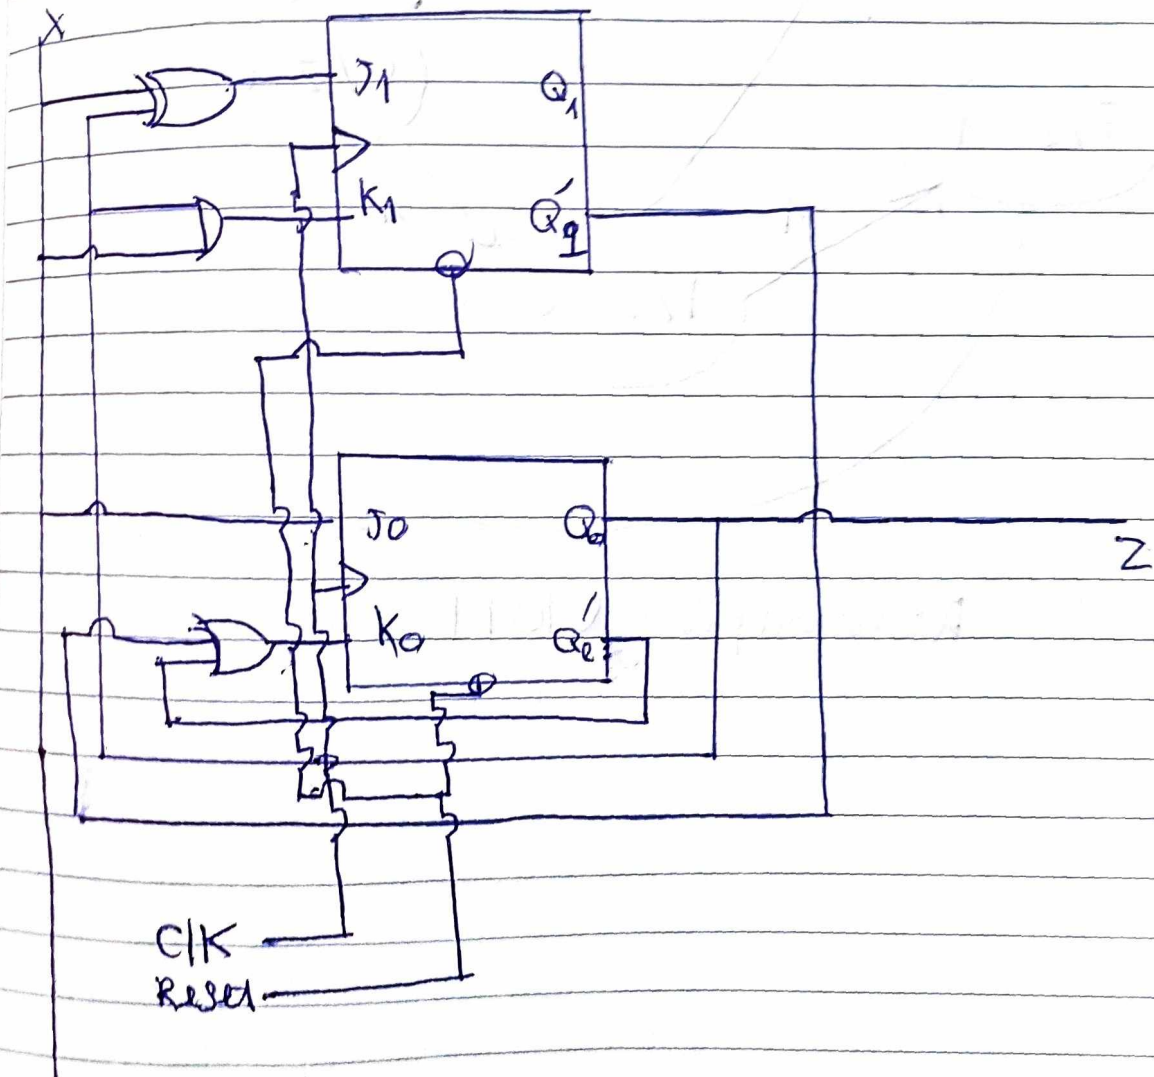 X
J1
Q1
K1
Q'1
J0
Q0
Z
K0
Q'0
Clk
Reset